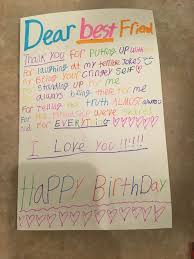 Dear best Friend
Thank you for Putting up with
For laughing at my terrible Jokes
my Being your cringey self
For standing up for me
always being there for me
For telling the truth ALMOST always
For the we've shared
for EVERYTHING
I Love you!!!!!
HAPPY BirthDay